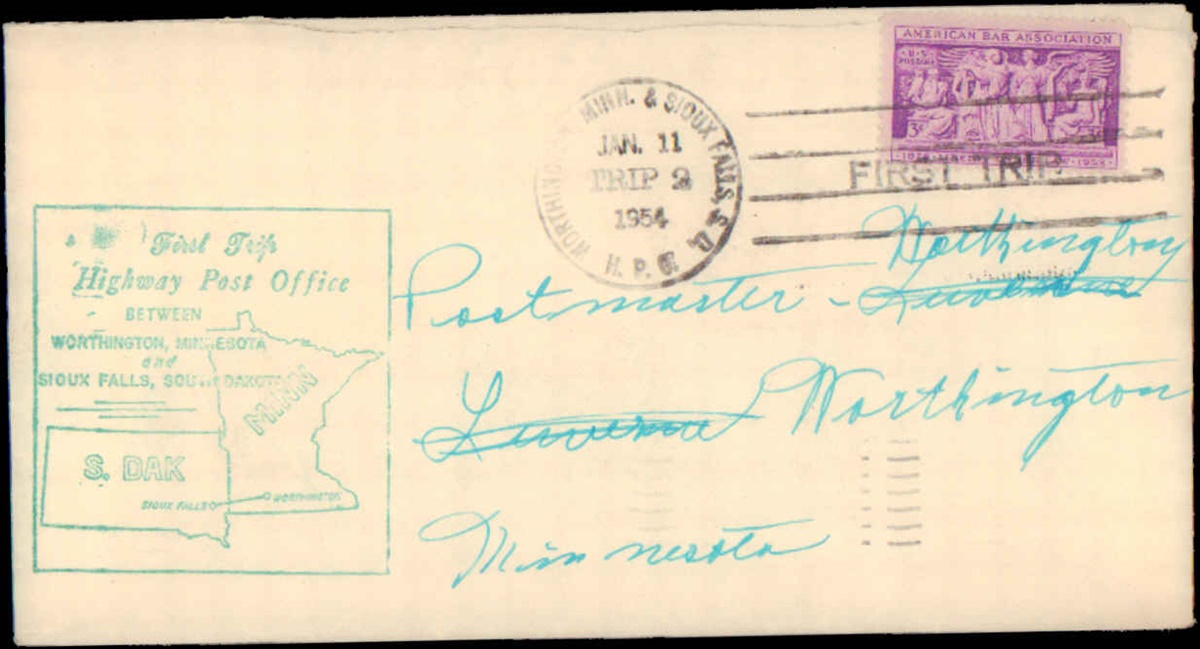 AMERICAN BAR ASSOCIATION
U·S
POSTAGE
3¢ 3¢
WORTHINGTON, MINN. & SIOUX FALLS, S. D.
JAN. 11
TRIP 2
1954
H. P. O.
FIRST TRIP
First Trip
Highway Post Office
BETWEEN
WORTHINGTON, MINNESOTA
and
SIOUX FALLS, SOUTH DAKOTA
MINN
S. DAK
SIOUX FALLS
WORTHINGTON
Worthington
Postmaster - Luverne
Luverne Worthington
Minnesota